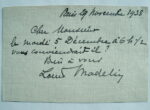 Paris 29 novembre 1938
Cher Monsieur
le mardi 5 Décembre à 6 h 1/2
vous conviendrait-il ?
Bien à vous
Louis Madelin